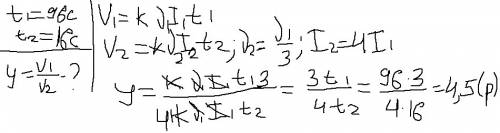 t₁=96c
t₂=16c
y=V₁/V₂-?
V₁=kν₁I₁t₁
V₂=kν₂I₂t₂; ν₂=ν₁/3; I₂=4I₁
y=kν₁I₁t₁3/4kν₁I₁t₂=3t₁/4t₂=96·3/4·16=4,5(р)